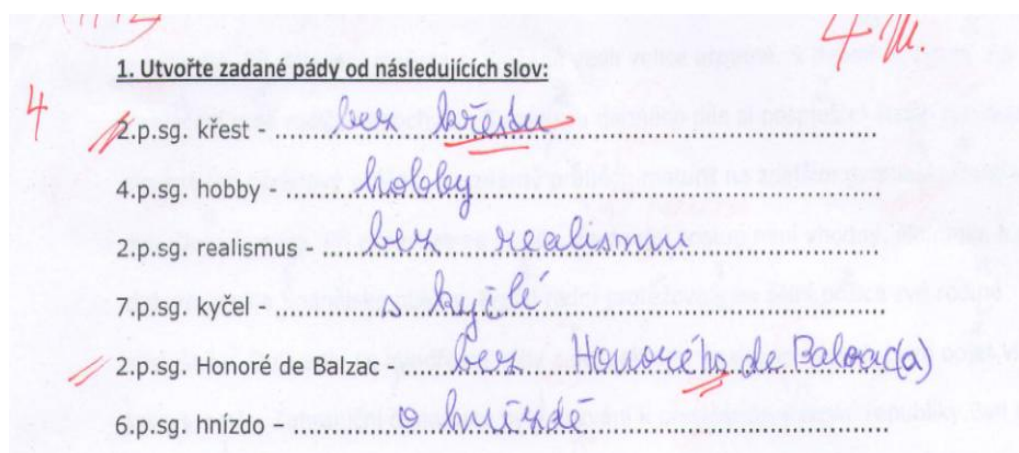 4 m.
1. Utvořte zadané pády od následujících slov:
4
2.p.sg. křest - bez křestu
4.p.sg. hobby - hobby
2.p.sg. realismus - bez realismu
7.p.sg. kyčel - s kyčlé
2.p.sg. Honoré de Balzac - bez Honorého de Balzac(a)
6.p.sg. hnízdo – o hnízdě